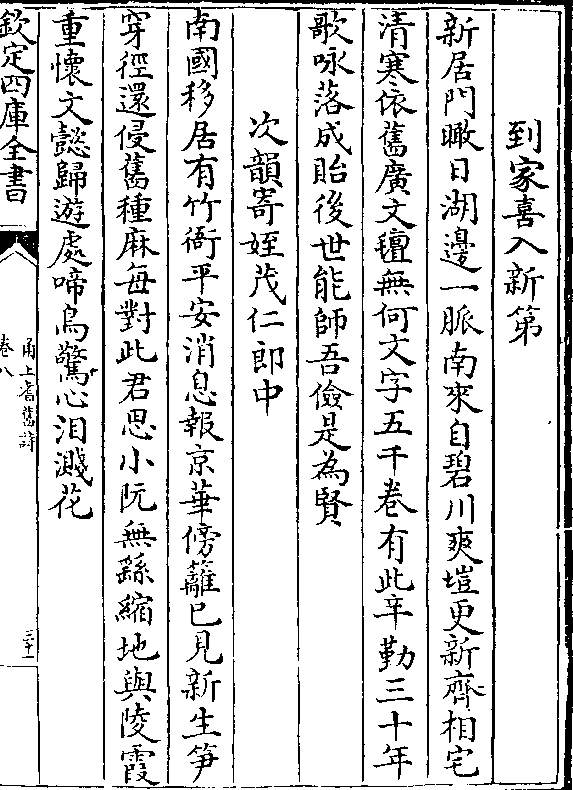 到家喜入新第
新居門瞰日湖邊一脈南來自碧川爽塏更新齊相宅
清寒依舊廣文氊無何文字五千卷有此辛勤三十年
歌咏落成貽後世能師吾儉是為賢
次韻寄姪茂仁郎中
南國移居有竹衙平安消息報京華傍籬已見新生笋
穿徑還侵舊種麻每對此君思小阮無繇縮地與陵霞
重懷文懿歸遊處啼鳥驚心泪濺花
欽定四庫全書
甬上耆舊詩
卷八
三十一